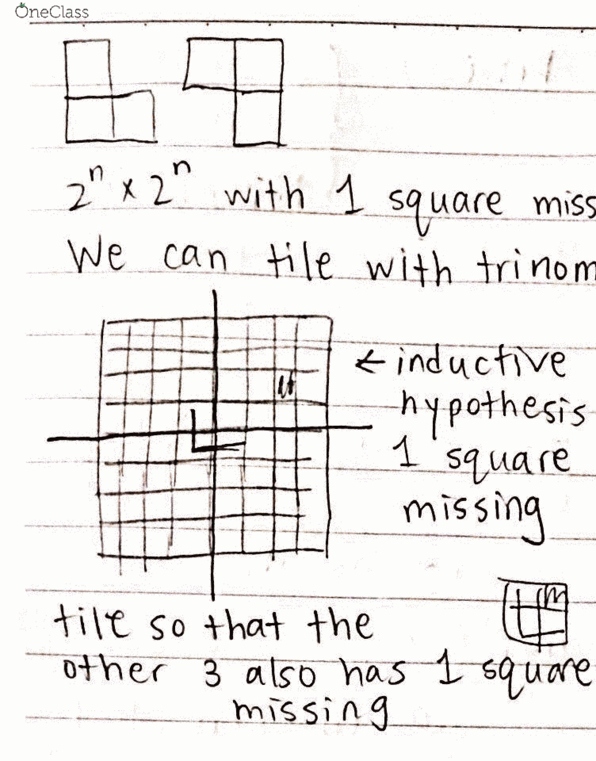 OneClass
2ⁿ x 2ⁿ with 1 square miss
We can tile with trinom
← inductive
hypothesis
1 square
missing
tile so that the
other 3 also has 1 square
missing